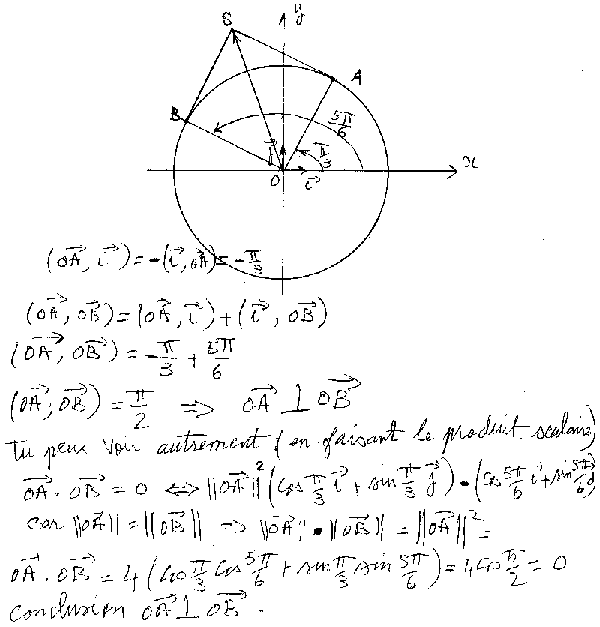 S y
A
B 5π/6
π/3
j⃗
O i⃗ x
(OA⃗, i⃗) = -(i⃗, OA⃗) = -π/3
(OA⃗, OB⃗) = (OA⃗, i⃗) + (i⃗, OB⃗)
(OA⃗, OB⃗) = -π/3 + 5π/6
(OA⃗; OB⃗) = π/2 ⇒ OA⃗ ⊥ OB⃗
tu peux voir autrement (en faisant le produit scalaire)
OA⃗ . OB⃗ = 0 ⇔ ||OA⃗||² (cos π/3 i⃗ + sin π/3 j⃗) • (cos 5π/6 i⃗ + sin 5π/6 j⃗)
car ||OA⃗|| = ||OB⃗|| ⇒ ||OA⃗|| • ||OB⃗|| = ||OA⃗||² =
OA⃗ . OB⃗ = 4 (cos π/3 cos 5π/6 + sin π/3 sin 5π/6) = 4 cos π/2 = 0
conclusion OA⃗ ⊥ OB⃗ .